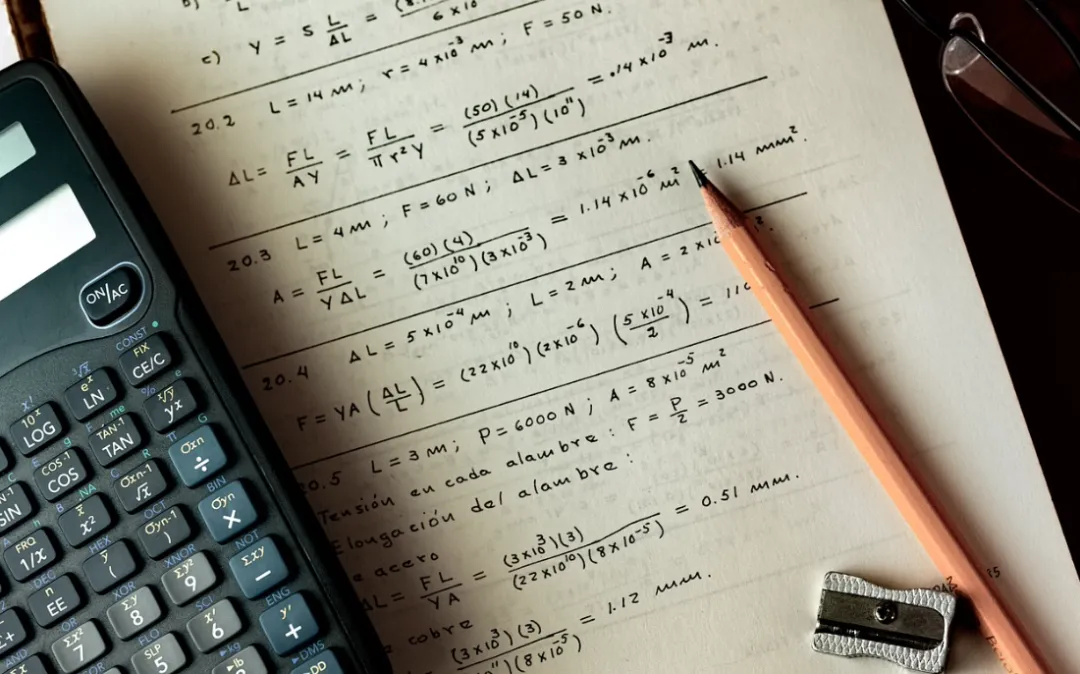 b)
c) Y = 5 L/ΔL =
6 x 10
20.2 L = 14 m; r = 4x10⁻³ m; F = 50 N.
ΔL = FL/AY = FL/πr²Y = (50)(14)/(5x10⁻⁵)(10¹¹) = .14 x10⁻³ m.
20.3 L = 4m; F = 60 N; ΔL = 3 x10⁻³ m.
A = FL/YΔL = (60)(4)/(7x10¹⁰)(3x10⁻³) = 1.14 x10⁻⁶ m² 1.14 mm².
20.4 ΔL = 5x10⁻⁴ m; L = 2m; A = 2 x10
F = YA (ΔL/L) = (22x10¹⁰)(2x10⁻⁶) (5x10⁻⁴/2) = 110
20.5 L = 3 m; P = 6000 N; A = 8x10⁻⁵ m²
Tensión en cada alambre: F = P/2 = 3000 N.
Elongación del alambre:
e acero
ΔL = FL/YA = (3x10³)(3)/(22x10¹⁰)(8x10⁻⁵) = 0.51 mm.
cobre
(3x10³)(3)/(8x10⁻⁵) = 1.12 mm.
ON/AC
CONST
FIX
CE/C
eˣ
LN
x√y
yx
10ˣ
LOG
TAN-1
TAN
σxn
÷
COS-1
COS
σxn-1
√x
BIN
σyn
×
SIN
x²
OCT
σyn-1
)
NOT
FRQ
1/x
HEX
y
(
XNOR
Σy²
9
Σxy
−
DEC
n
EE
XOR
Σy
8
SCI
x'
6
ENG
y'
+
OR
Σx²
7
FLO
SLP
5
kg
lb
DMS
DD
AND